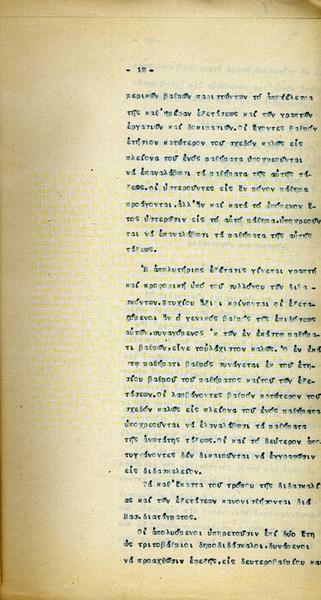 - 12 -
μερικῶν βαθμῶν παριστώντων τὸ ἀποτέλεσμα
τῆς καθ'ἡμέραν ἐξετάσεως καὶ τῶν γραπτῶν
ἐργασιῶν καὶ δοκιμασιῶν.Οἱ ἔχοντες βαθμὸν
ἐτήσιον κατώτερον τοῦ σχεδὸν καλῶς εἰς
πλείονα τοῦ ἑνὸς μαθήματα ὑποχρεοῦνται
νὰ ἐπαναλάβωσι τὰ μαθήματα τῆς αὐτῆς τά-
ξεως.Οἱ ὑστεροῦντες εἰς ἓν μόνον μάθημα
προάγονται,ἀλλ'ἂν καὶ κατὰ τὸ ἑπόμενον ἔ-
τος ὑστερῶσιν εἰς τὸ αὐτὸ μάθημα,ὑποχρεοῦν
ται νὰ ἐπαναλάβωσι τὰ μαθήματα τῆς αὐτῆς
τάξεως.
Ἡ ἀπολυτήριος ἐξέτασις γίνεται γραπτὴ
καὶ προφορικὴ ὑπὸ τοῦ συλλόγου τῶν διδα-
σκόντων.Πτυχίου ἄξιοι κρίνονται οἱ ἐξετα-
ζόμενοι ἂν ὁ γενικὸς βαθμὸς τῆς ἐπιδόσεως
αὐτῶν,συναγόμενος ἐκ τῶν ἐν ἑκάστῳ μαθήμα-
τι βαθμῶν,εἶνε τοὐλάχιστον καλῶς. Ὁ ἐν ἑκά
στῳ μαθήματι βαθμὸς συνάγεται ἐκ τοῦ ἐτη-
σίου βαθμοῦ τοῦ μαθήματος καὶ τοῦ τῶν ἐξε-
τάσεων.Οἱ λαμβάνοντες βαθμὸν κατώτερον τοῦ
σχεδὸν καλῶς εἰς πλείονα τοῦ ἑνὸς μαθήματα
ὑποχρεοῦνται νὰ ἐπαναλάβωσι τὰ μαθήματα
τῆς ἀνωτάτης τάξεως.Οἱ καὶ τὸ δεύτερον ἀπο
τυγχάνοντες δὲν δικαιοῦνται νὰ ἐγγραφῶσιν
εἰς διδασκαλεῖον.
Τὰ καθ'ἕκαστα τοῦ τρόπου τῆς διδασκαλί
ας καὶ τῶν ἐξετάσεων κανονισθήσονται διὰ
Βασ.διατάγματος.
Οἱ ἀπολυόμενοι ὑπηρετοῦσιν ἐπὶ δύο ἔτη
ὡς τριτοβάθμιοι δημοδιδάσκαλοι,δυνάμενοι
νὰ προαχθῶσιν ἐφεξῆς,εἰς δευτεροβαθμίου καὶ